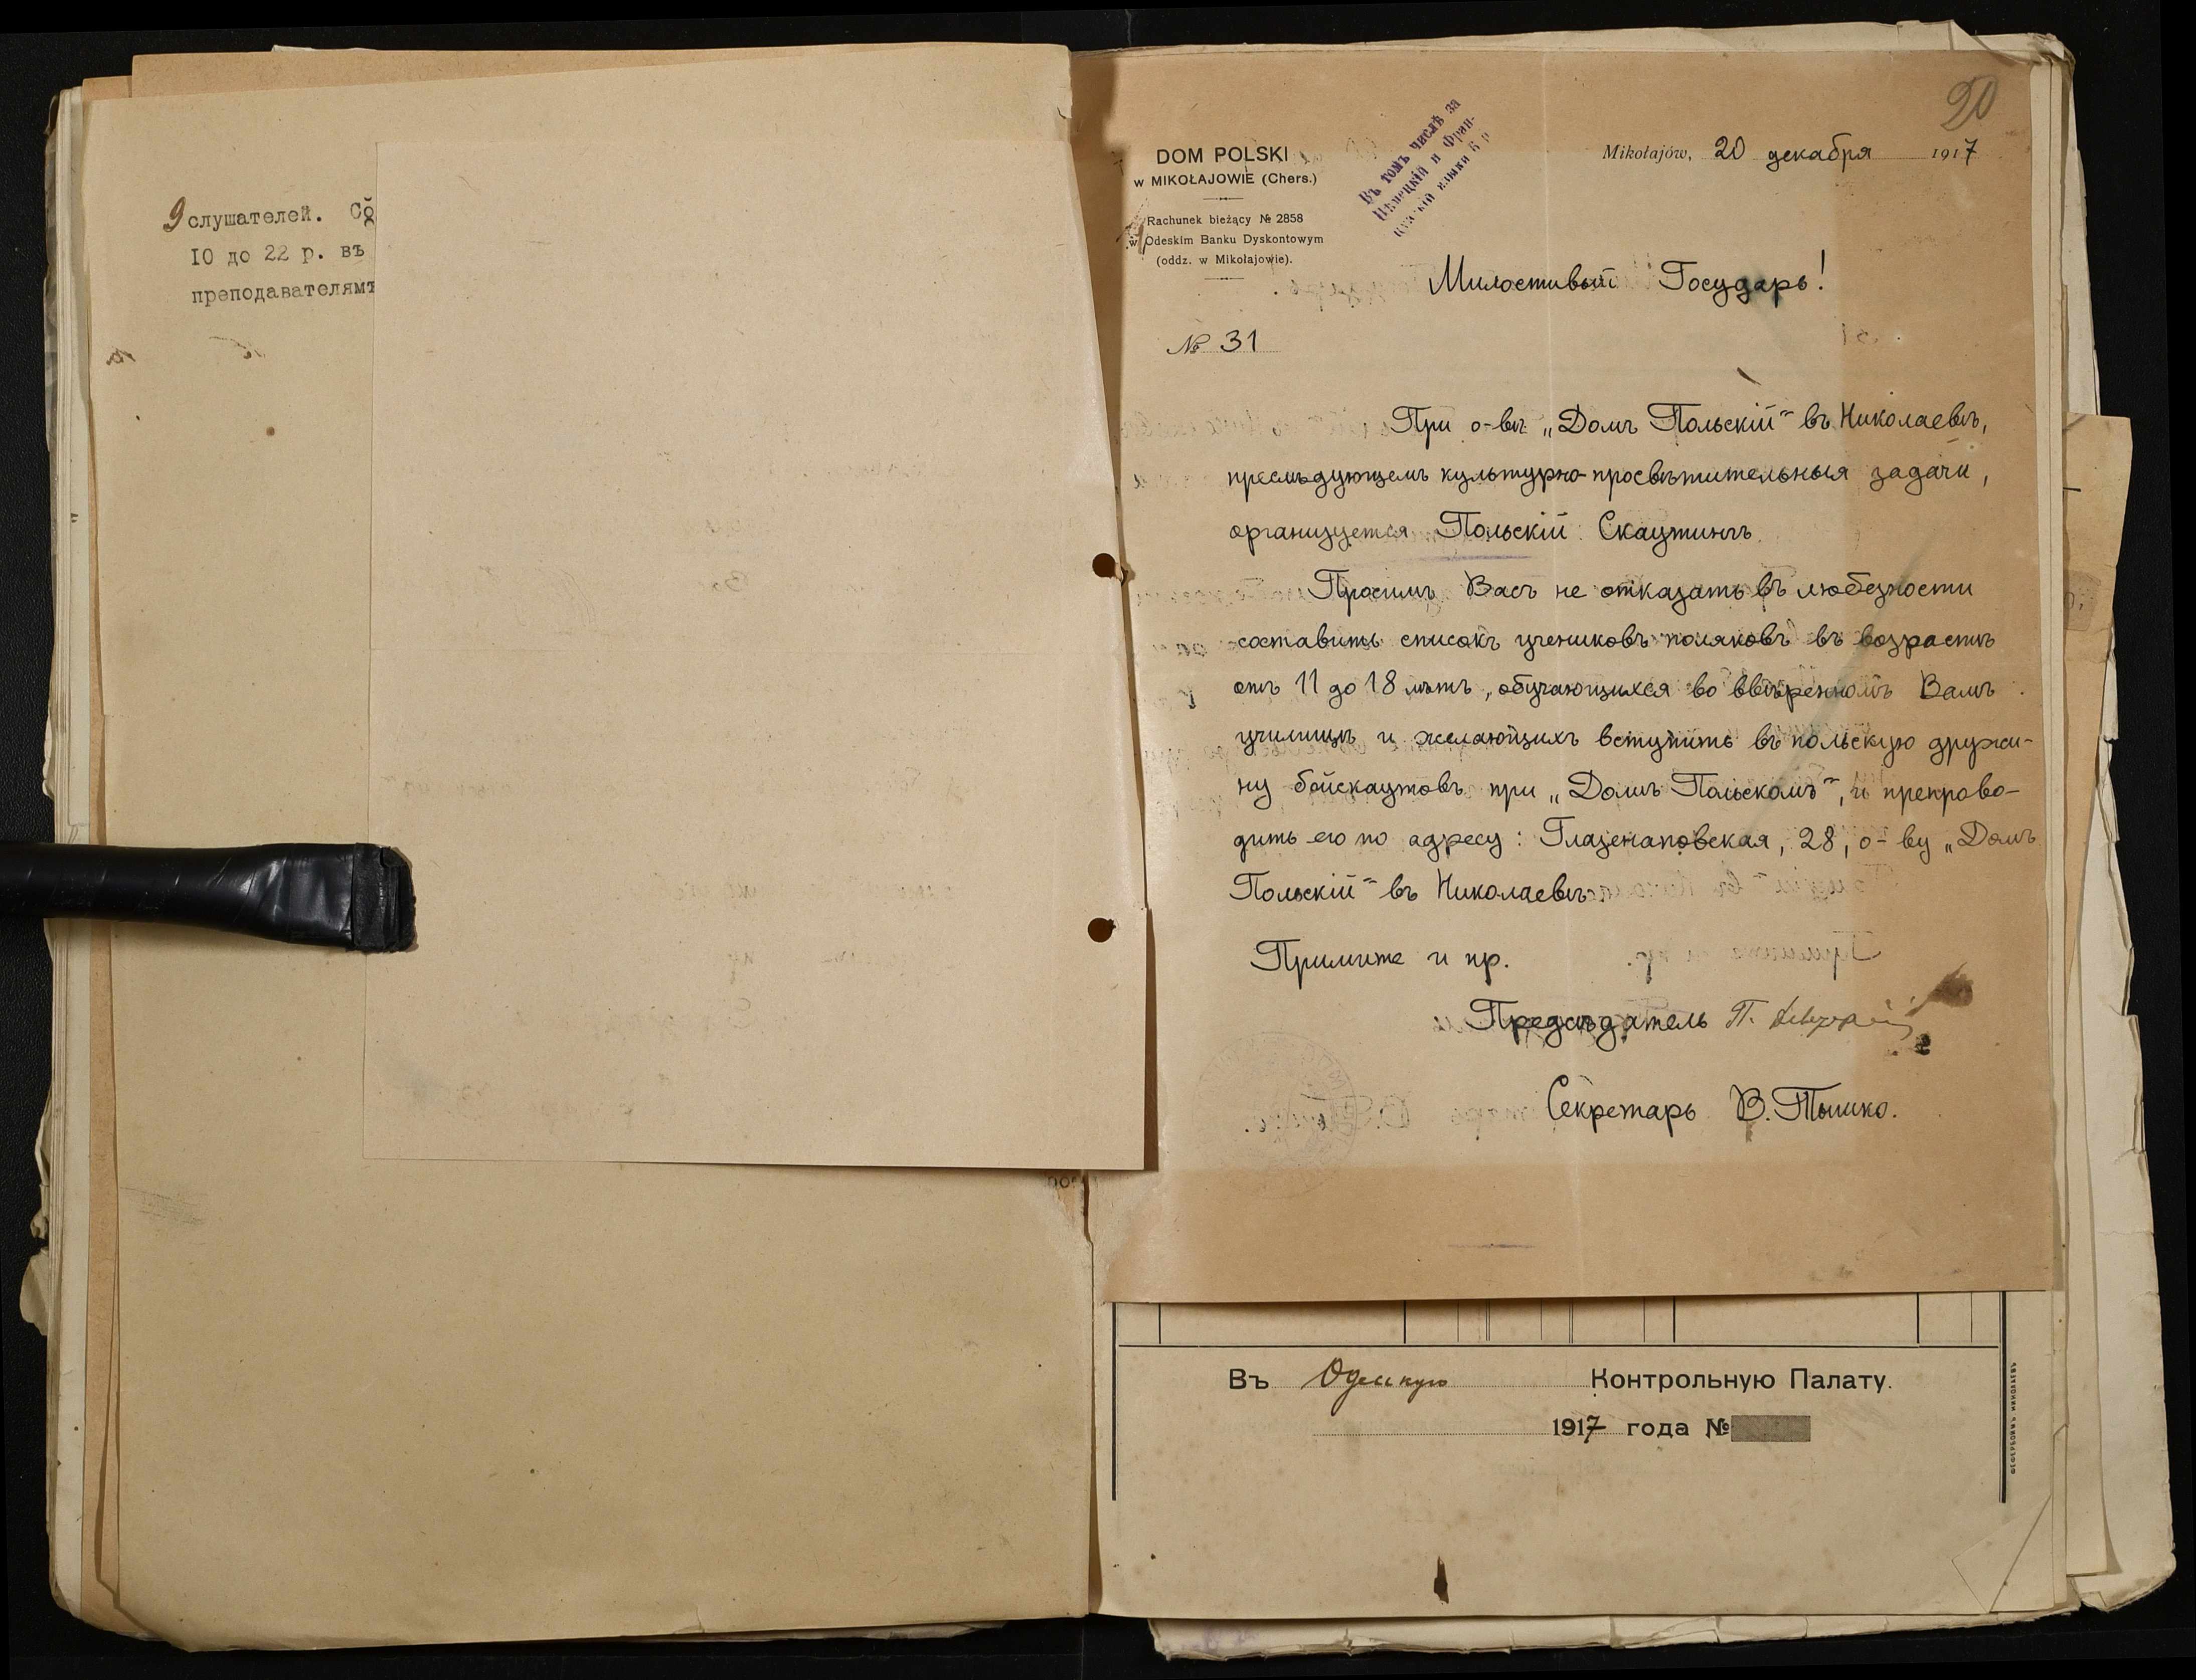 9 слушателей. Сб
10 до 22 р. въ
преподавателямъ
20
DOM POLSKI
w MIKOŁAJOWIE (Chers.)
Rachunek bieżący № 2858
w Odeskim Banku Dyskontowym
(oddz. w Mikołajowie).
Въ томъ числѣ за
Нѣмецкій и Фран-
цузскій языки
Mikołajów, 20 декабря 1917
Милостивый Государь!
№ 31
При о-вѣ „Домъ Польскій“ въ Николаевѣ,
преслѣдующемъ культурно-просвѣтительныя задачи,
организуется Польскій Скаутингъ.
Просимъ Васъ не отказать въ любезности
составить списокъ учениковъ поляковъ въ возрастѣ
отъ 11 до 18 лѣтъ, обучающихся во ввѣренномъ Вамъ
училищѣ и желающихъ вступить въ польскую дружи-
ну бойскаутовъ при „Домѣ Польскомъ“, и препрово-
дить его по адресу: Глазенаповская, 28, о-ву „Домъ
Польскій“ въ Николаевѣ.
Примите и пр.
Предсѣдатель П.
Секретарь В. Тышко.
Въ Одесскую Контрольную Палату.
1917 года №